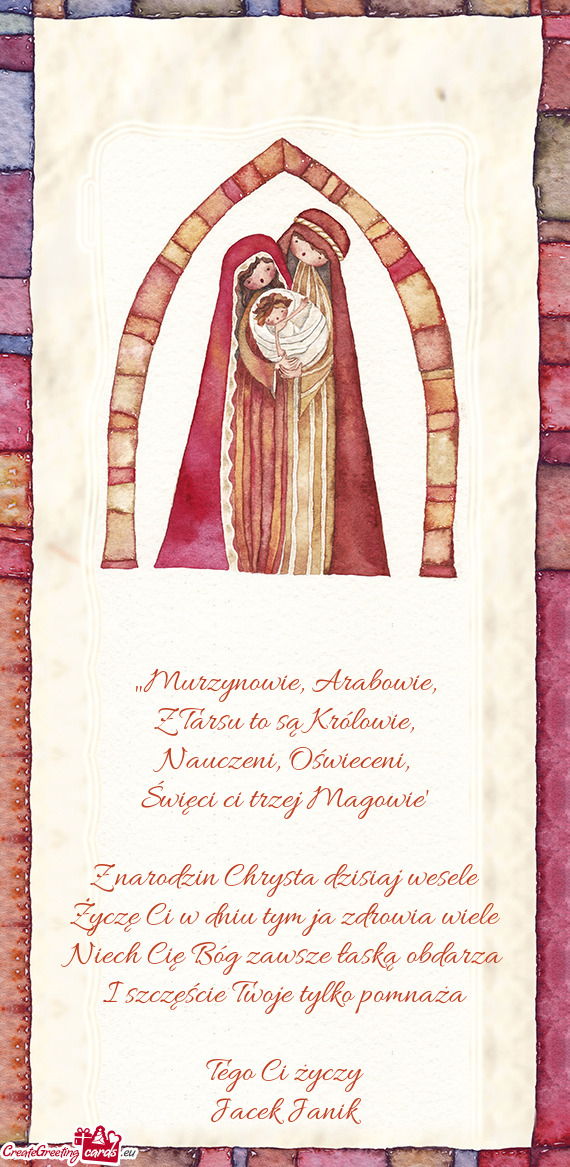 „Murzynowie, Arabowie,
Z Tarsu to są Królowie,
Nauczeni, Oświeceni,
Święci ci trzej Magowie'
Z narodzin Chrysta dzisiaj wesele
Życzę Ci w dniu tym ja zdrowia wiele
Niech Cię Bóg zawsze łaską obdarza
I szczęście Twoje tylko pomnaża
Tego Ci życzy
Jacek Janik
CreateGreeting cards .eu